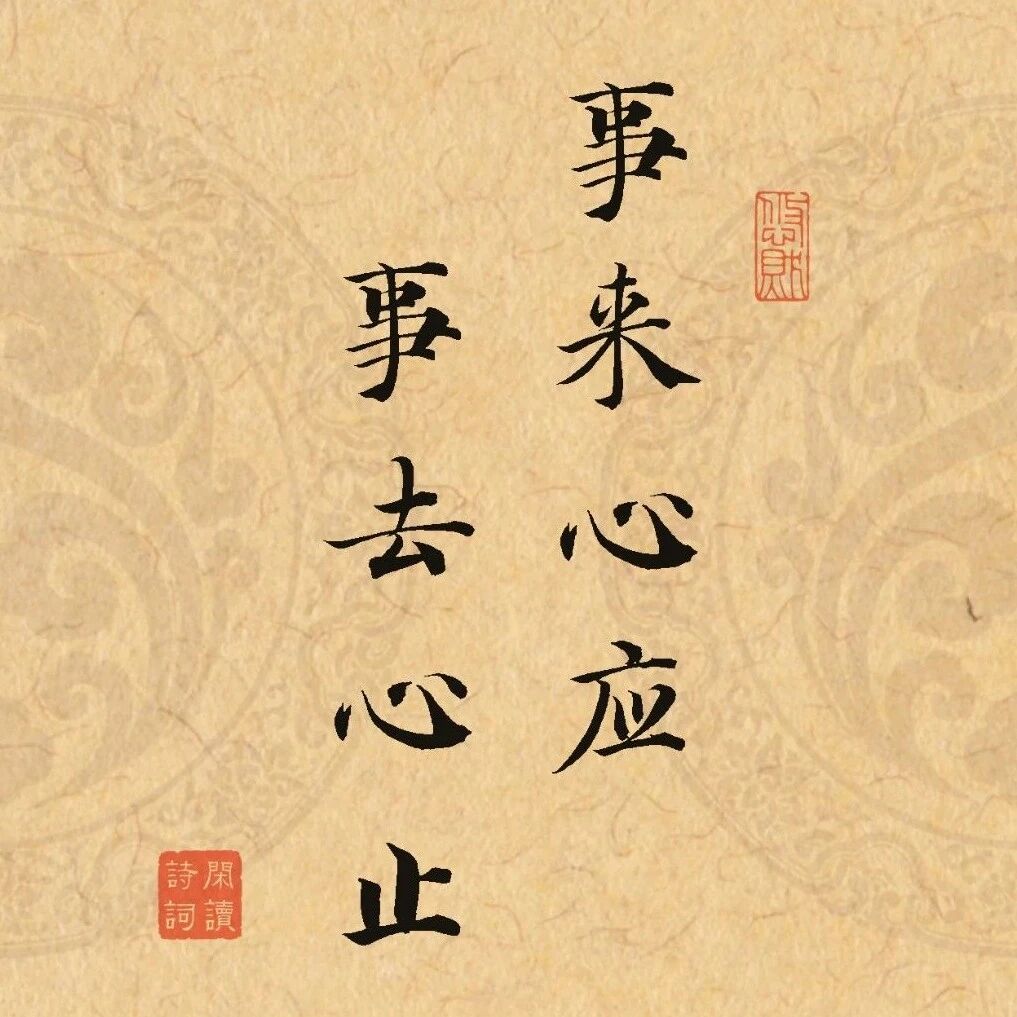 事来心应
事去心止
閑讀
詩詞